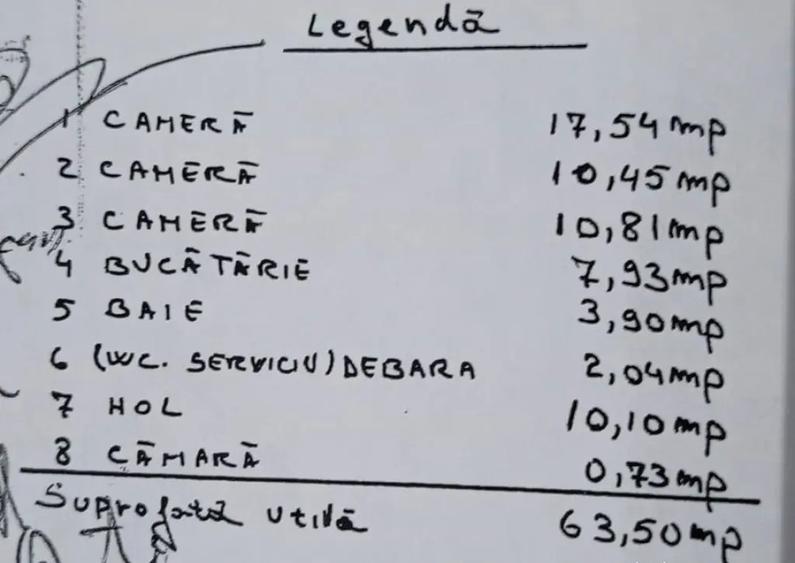 Legendă
1 CAMERĂ 17,54 mp
2 CAMERĂ 10,45 mp
3 CAMERĂ 10,81 mp
4 BUCĂTĂRIE 7,93 mp
5 BAIE 3,90 mp
6 (WC. SERVICIU) DEBARA 2,04 mp
7 HOL 10,10 mp
8 CĂMARĂ 0,73 mp
Suprofată utilă 63,50 mp